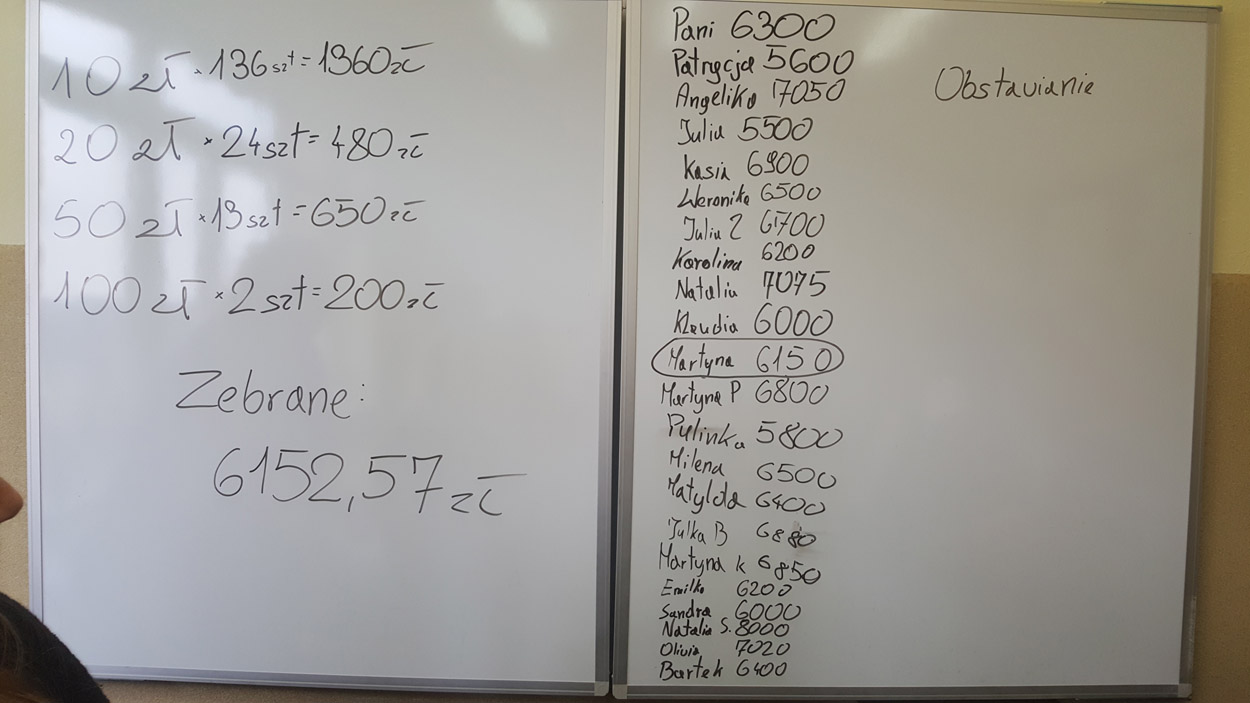 10 zł × 136 szt = 1360 zł
20 zł × 24 szt = 480 zł
50 zł × 13 szt = 650 zł
100 zł × 2 szt = 200 zł
Zebrane:
6152,57 zł
Pani 6300
Patrycja 5600
Angelika 7050
Julia 5500
Kasia 6900
Weronika 6500
Julia Z 6700
Karolina 6200
Natalia 7075
Klaudia 6000
Martyna 6150
Martyna P 6800
Pulinka 5800
Milena 6500
Matylda 6400
Julka B 6880
Martyna K 6850
Emilka 6200
Sandra 6000
Natalia S. 8000
Oliwia 7020
Bartek 6400
Obstawianie